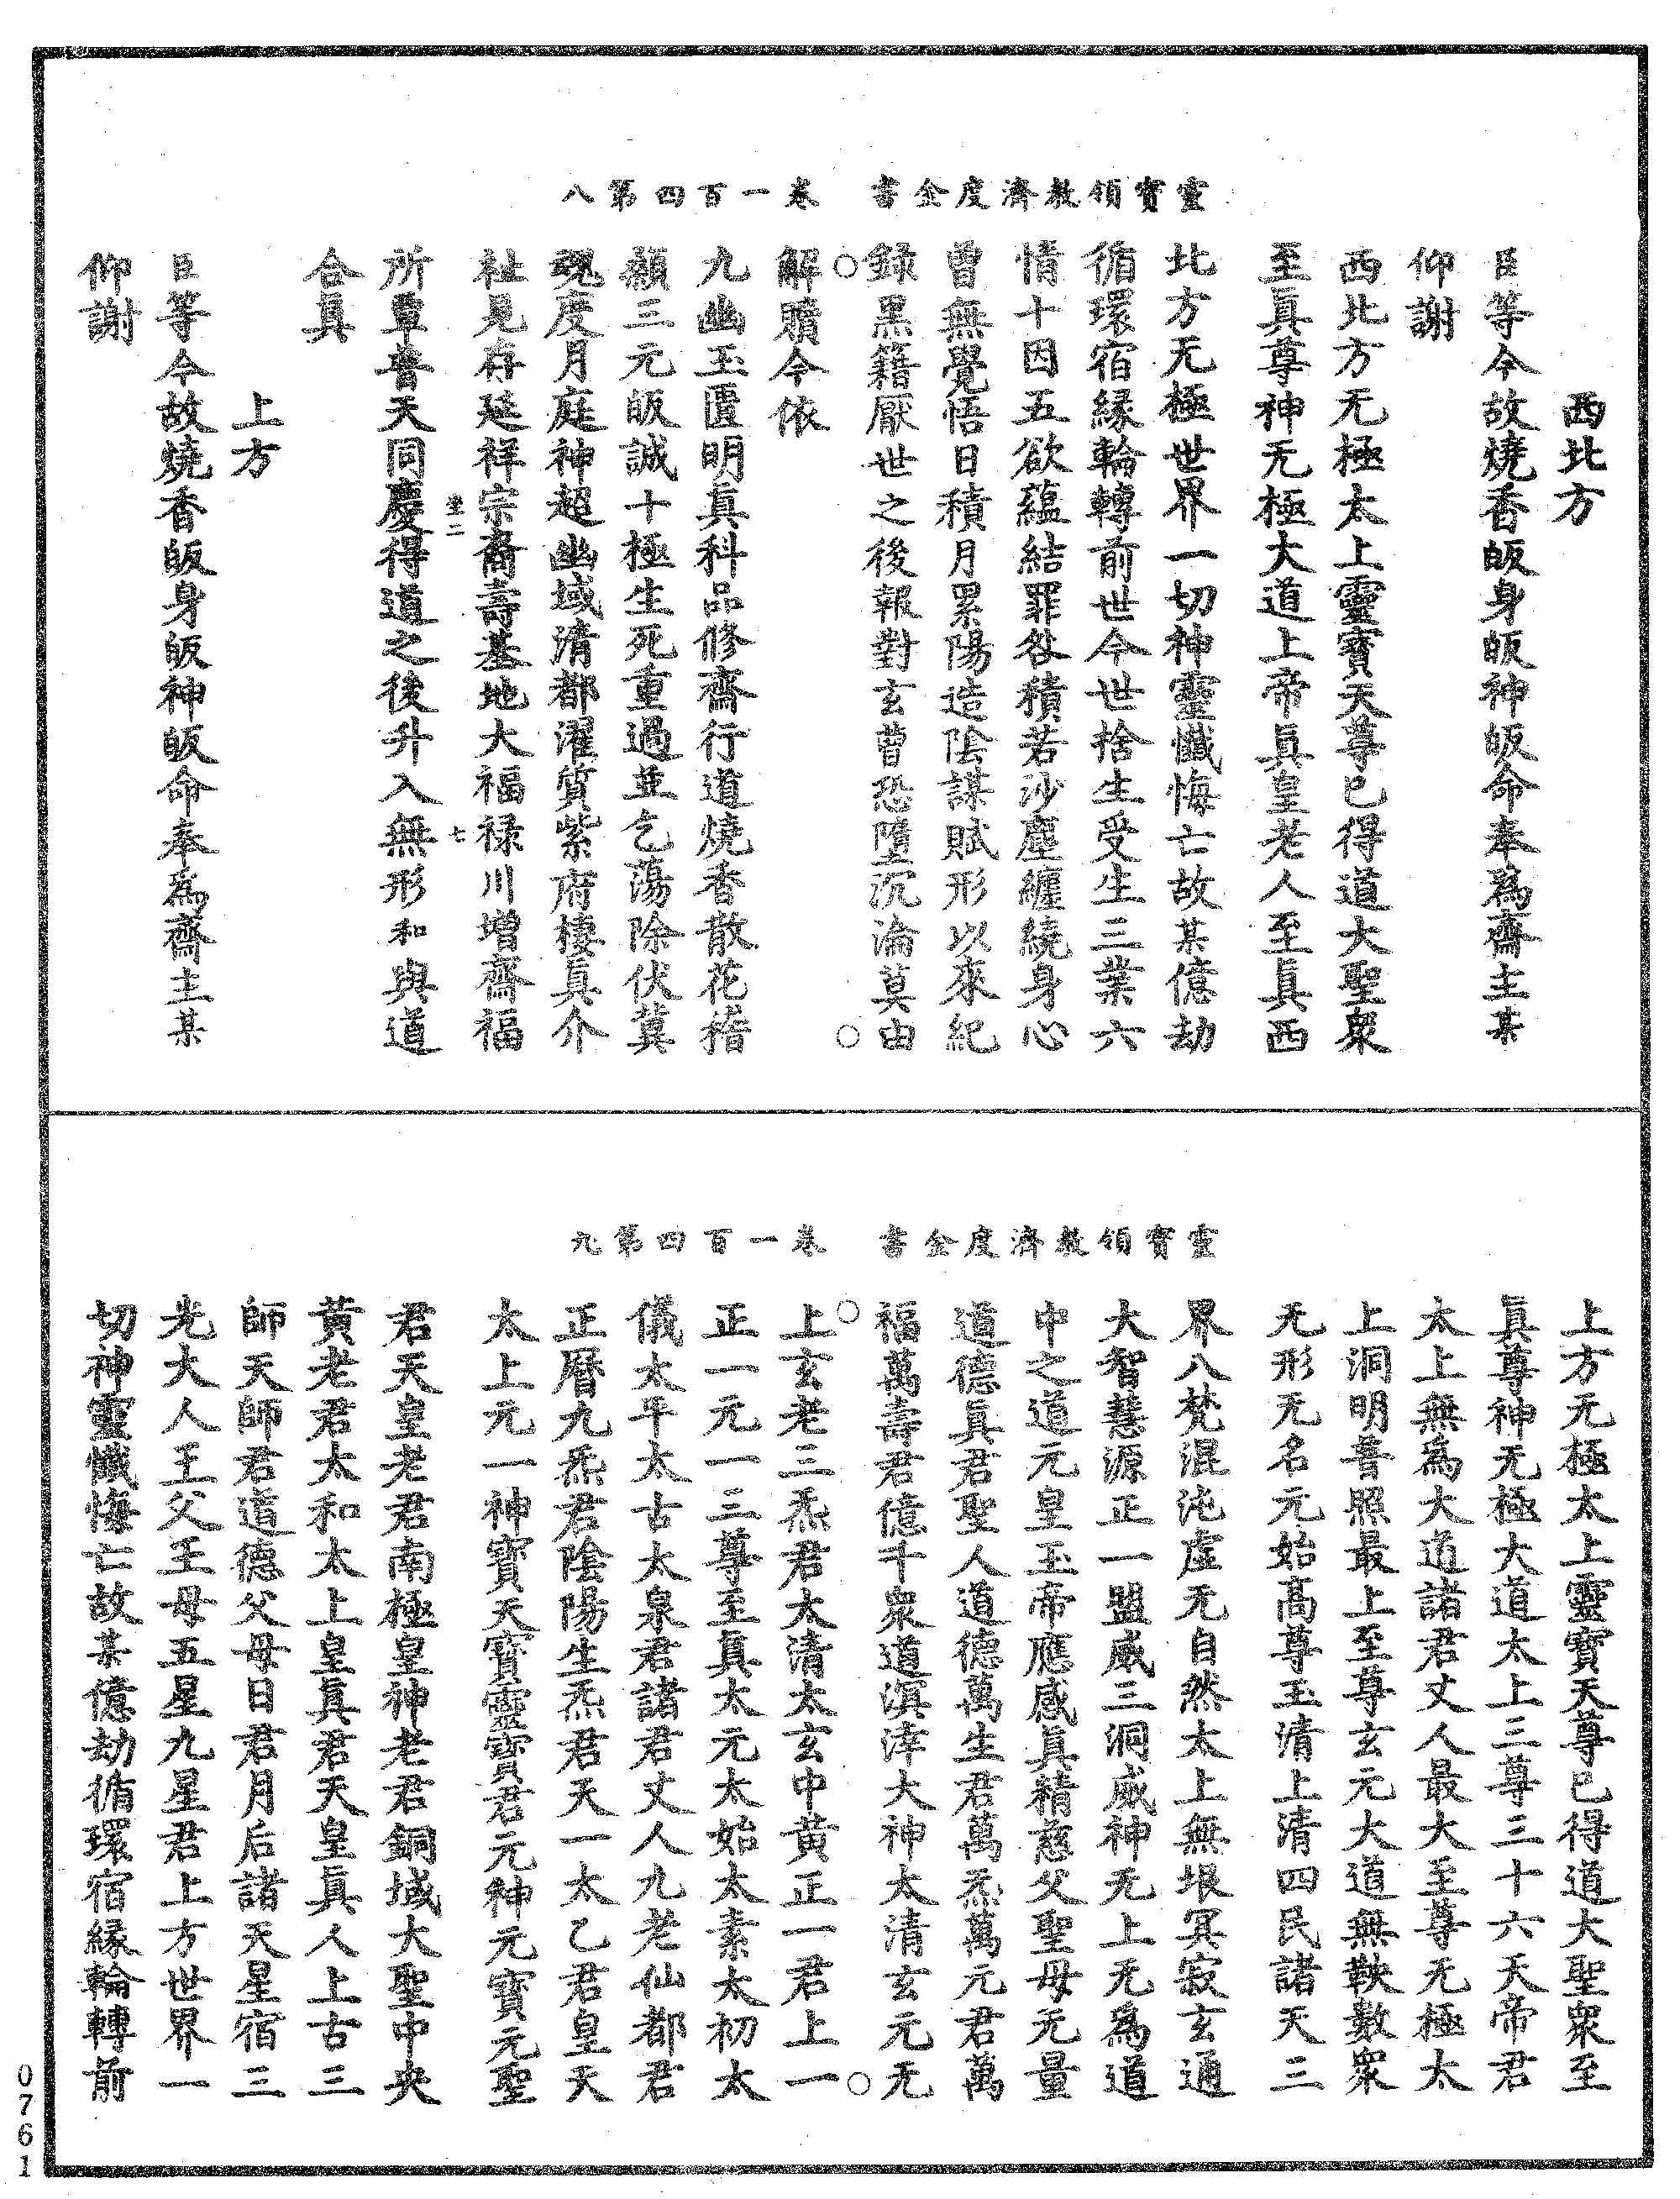 靈寶領教濟度金書　卷一百四第八
西北方
臣等今故燒香皈身皈神皈命奉爲齋主某
仰謝
西北方无極太上靈寶天尊已得道大聖衆
至眞尊神无極大道上帝眞皇老人至眞西
北方无極世界一切神靈懺悔亡故某億劫
循環宿縁輪轉前世今世捨生受生三業六
情十因五欲蘊結罪咎積若沙塵纏繞身心
曾無覺悟日積月累陽造陰謀賦形以來紀
錄黑籍厭世之後報對玄曹恐墮沉淪莫由
解贖今依
九幽玉匱明眞科品修齋行道燒香散花㨗
顙三元皈誠十極生死重過並乞蕩除伏冀
魂度月庭神超幽域清都濯質紫府棲眞介
祉見存延祥宗裔壽基地大福禄川增齋福
所覃普天同慶得道之後升入無形和與道
合眞
上方
臣等今故燒香皈身皈神皈命奉爲齋主某
仰謝
坐二　七
靈寶領教濟度金書　卷一百四第九
上方无極太上靈寶天尊已得道大聖衆至
眞尊神无極大道太上三尊三十六天帝君
太上無爲大道諸君丈人最大至尊无極太
上洞明普照最上至尊玄元大道無鞅數衆
无形无名元始高尊玉清上清四民諸天三
界八梵混沌虛无自然太上無垠冥寂玄通
大智慧源正一盟威三洞威神无上无爲道
中之道元皇玉帝應感眞精慈父聖母无量
道德眞君聖人道德萬生君萬炁萬元君萬
福萬壽君億千衆道溟涬大神太清玄元无
上玄老三炁君太清太玄中黄正一君上一
正一元一三尊至眞太元太始太素太初太
儀太平太古太泉君諸君丈人九老仙都君
正曆九炁君陰陽生炁君天一太乙君皇天
太上元一神寶天寶靈寶君元神元寶元聖
君天皇老君南極皇神老君銅城大聖中央
黄老君太和太上皇眞君天皇眞人上古三
師天師君道德父母日君月后諸天星宿三
光大人王父王母五星九星君上方世界一
切神靈懺悔亡故某億劫循環宿縁輪轉前
0761